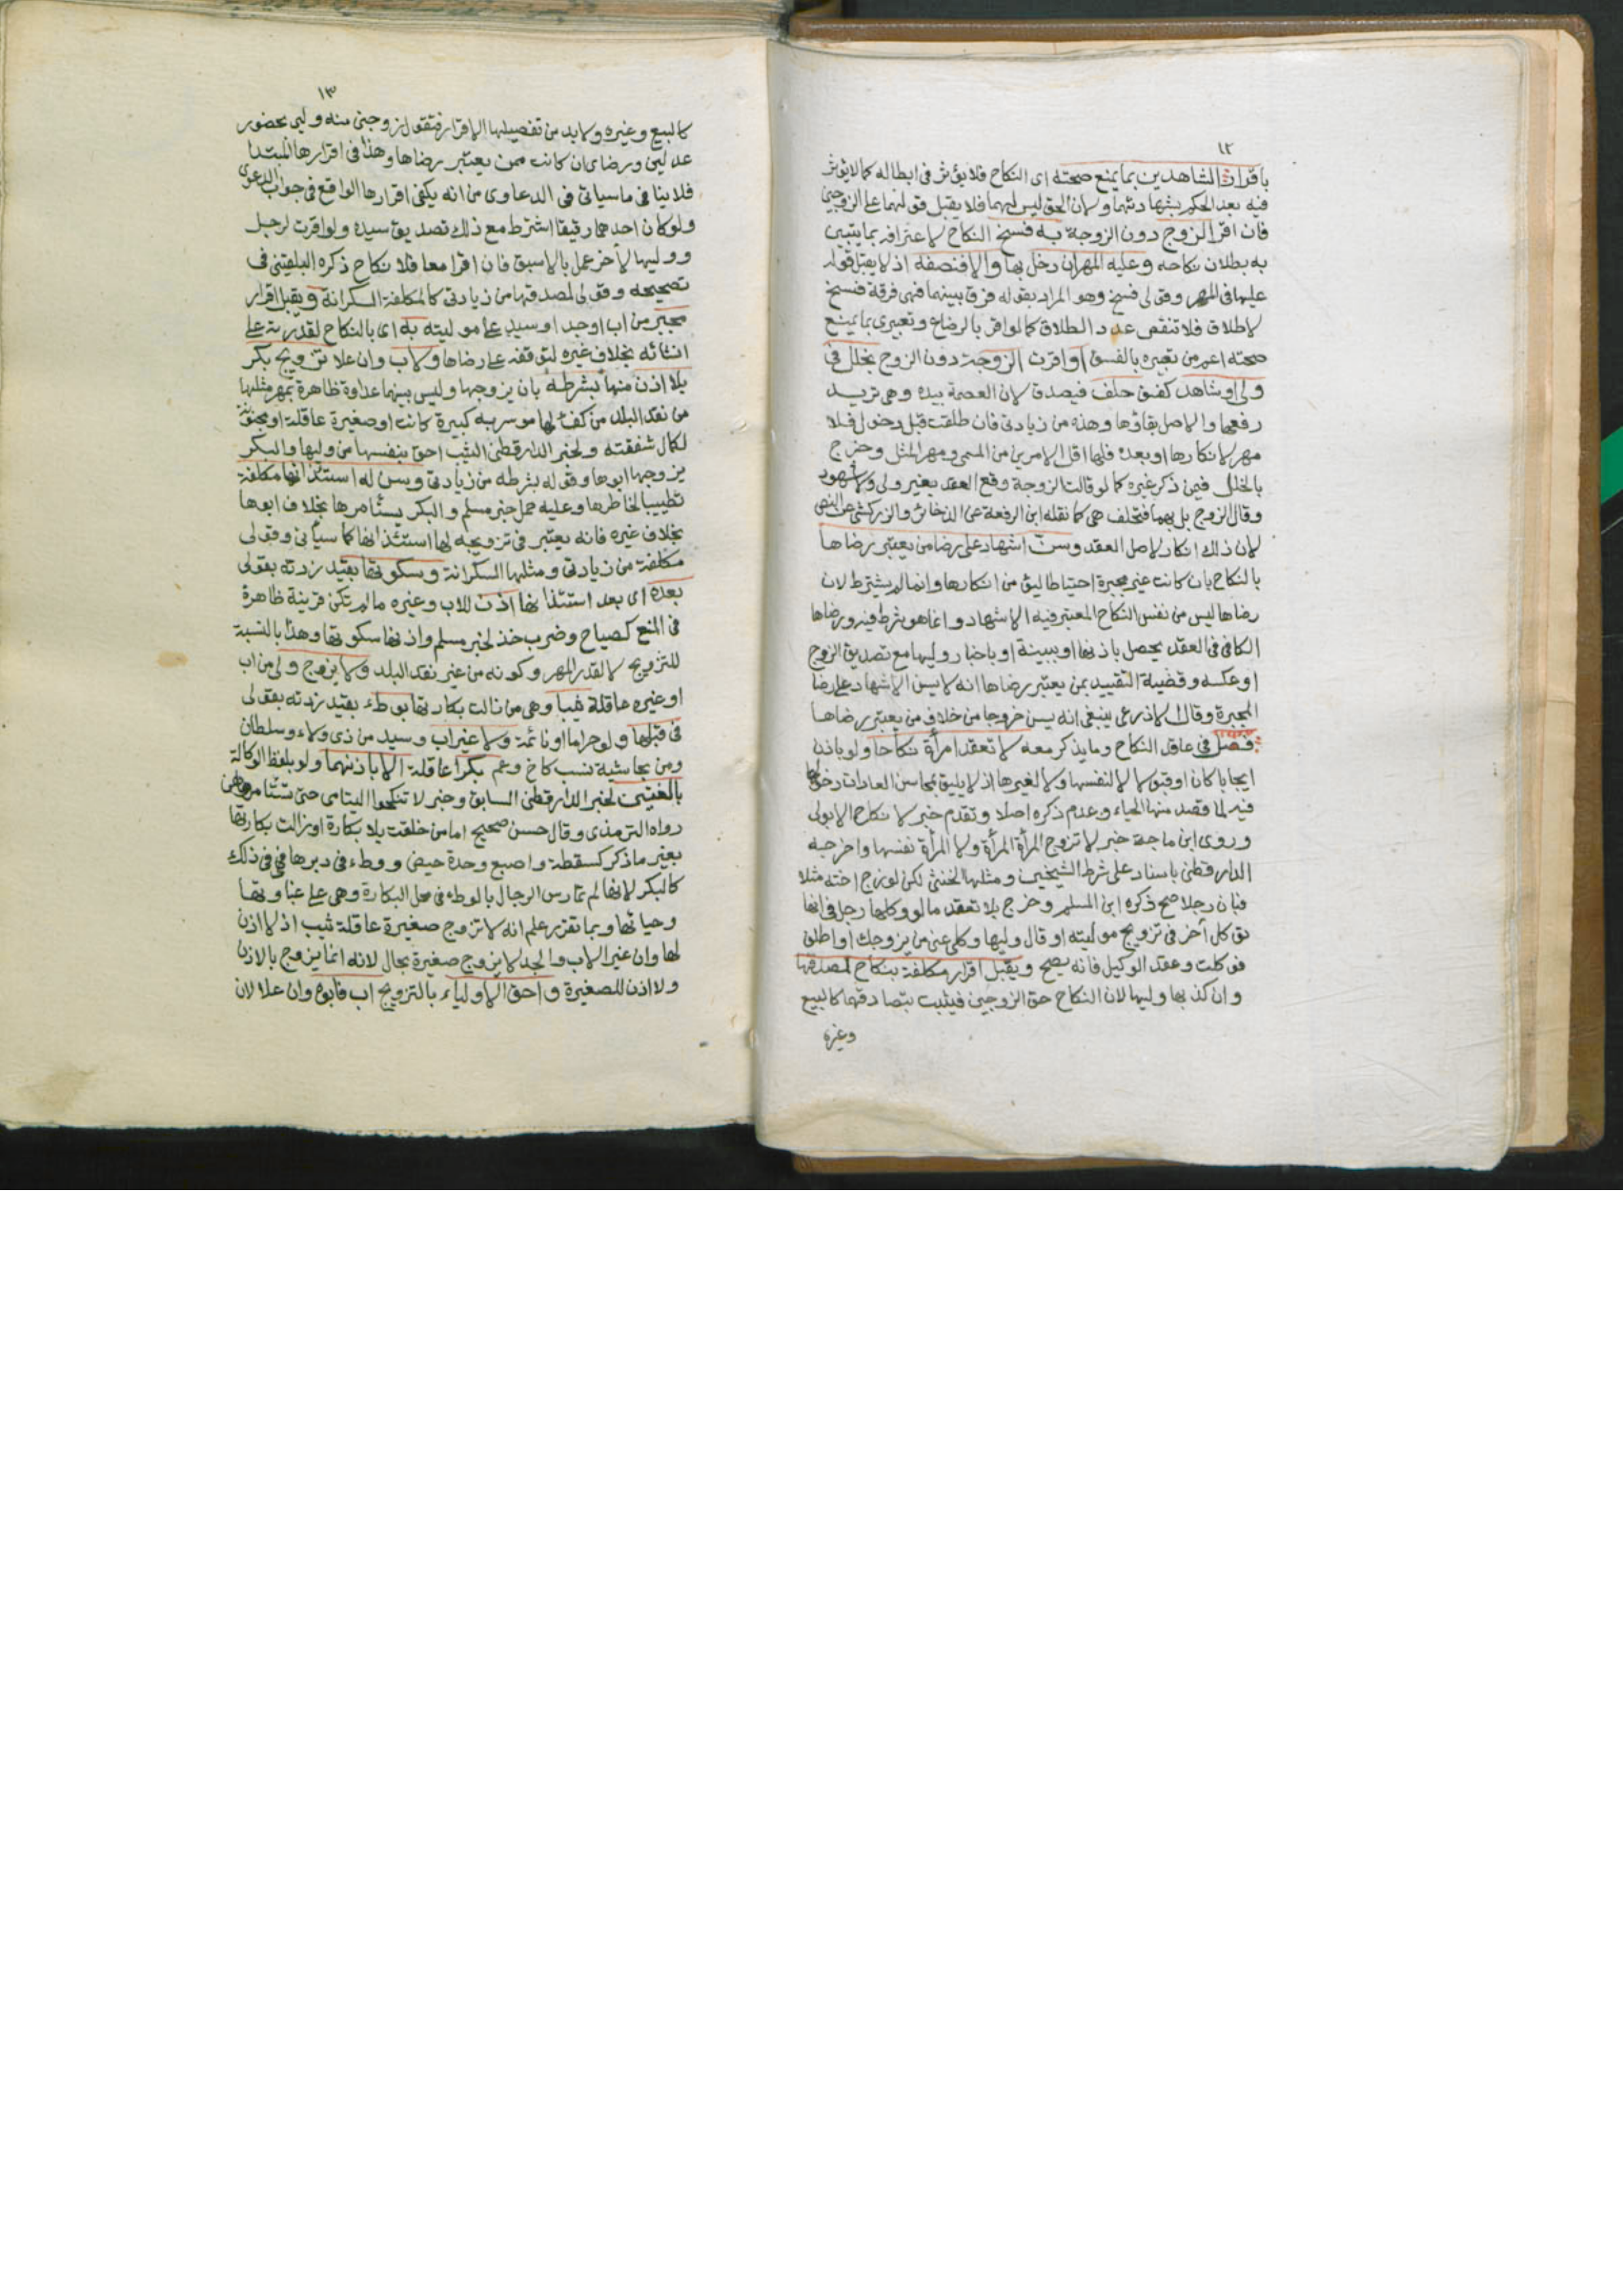 ١٢
باقرار الشاهدين بما يمنع صحته اى النكاح فلا يؤثر فى ابطاله كما لا يؤثر
فيه بعد الحكم بشهادتهما ولان الحق ليس لهما فلا يقبل قولهما على الزوجين
فان اقر الزوج دون الزوجة به فسخ النكاح لاعترافه بما يتبين
به بطلان نكاحه وعليه المهر ان دخل بها والا فنصفه اذ لا يقبل قوله
عليها فى المهر وقولى فسخ وهو المراد بقوله فرق بينهما فهى فرقة فسخ
لا طلاق فلا تنقص عدد الطلاق كما لو اقر بالرضاع وتعبيرى بما يمنع
صحته اعم من تعبيره بالفسق او اقرت الزوجة دون الزوج بخلل فى
ولى او شاهد كفسق حلف فيصدق لان العصمة بيده وهى تريد
رفعها والاصل بقاؤها وهذه من زيادتى فان طلقت قبل دخول فلا
مهر لانكارها او بعده فلها اقل الامرين من المسمى ومهر المثل وخرج
بالخلل فيمن ذكر غيره كما لو قالت الزوجة وقع العقد بغير ولى ولا شهود
وقال الزوج بل بهما فتحلف هى كما نقله ابن الرفعة عن الذخائر والزركشى عن النص
لان ذلك انكار لاصل العقد وسن اشهاد على رضا من يعتبر رضاها
بالنكاح بان كانت غير مجبرة احتياطا ليؤمن انكارها وانما لم يشترط لان
رضاها ليس من نفس النكاح المعتبر فيه الاشهاد وانما هو شرط فيه ورضاها
الكافى فى العقد يحصل باذنها او ببينة او باخبار وليها مع تصديق الزوج
او عكسه وقضية التقييد بمن يعتبر رضاها انه لا يسن الاشهاد على رضا
المجبرة وقال الاذرعى ينبغى انه يسن خروجا من خلاف من يعتبر رضاها
فصل فى عاقد النكاح وما يذكر معه لا تعقد امرأة نكاحا ولو باذن
ايجابا كان او قبولا لا لنفسها ولا لغيرها اذ لا يليق بمحاسن العادات دخولها
فيه لما قصد منها الحياء وعدم ذكره اصلا وتقدم خبر لا نكاح الا بولى
وروى ابن ماجة خبر لا تزوج المرأة المرأة ولا المرأة نفسها واخرجه
الدارقطنى باسناد على شرط الشيخين ومثلها الخنثى لكن لو زوج اخته مثلا
فبان رجلا صح ذكره ابن المسلم وخرج بلا تعقد ما لو وكلها رجل فى انها
توكل آخر فى تزويج موليته او قال وليها وكلى عنى من يزوجك او اطلق
فوكلت وعقد الوكيل فانه يصح ويقبل اقرار مكلفة بنكاح لمصدقها
وان كذبها وليها لان النكاح حق الزوجين فيثبت بتصادقهما كالبيع
وغيره
١٣
كالبيع وغيره ولا بد من تفصيلها الاقرار فتقول زوجنى منه وليى بحضور
عدلين ورضاى ان كانت ممن يعتبر رضاها وهذا فى اقرارها المبتدا
فلا ينافى ما سياتى فى الدعاوى من انه يكفى اقرارها الواقع فى جواب الدعوى
ولو كان احدهما رقيقا اشترط مع ذلك تصديق سيده ولو اقرت لرجل
ووليها لآخر عمل بالاسبق فان اقرا معا فلا نكاح ذكره البلقينى فى
تصحيحه وقولى لمصدقها من زيادتى كالمكلفة السكرانة ويقبل اقرار
مجبر من اب او جد او سيد على موليته به اى بالنكاح لقدرته على
انشائه بخلاف غيره لتوقفه على رضاها ولاب وان علا تزويج بكر
بلا اذن منها بشرطه بان يزوجها وليس بينهما عداوة ظاهرة بمهر مثلها
من نقد البلد من كفء لها موسر به كبيرة كانت او صغيرة عاقلة او مجنونة
لكمال شفقته ولخبر الدارقطنى الثيب احق بنفسها من وليها والبكر
يزوجها ابوها وقوله بشرطه من زيادتى وسن له استئذانها مكلفة
تطييبا لخاطرها وعليه حمل خبر مسلم والبكر يستأمرها بخلاف ابوها
بخلاف غيره فانه يعتبر فى تزويجه لها استئذانها كما سيأتى وقولى
مكلفة من زيادتى ومثلها السكرانة وسكوتها بقيد زدته بقولى
بعده اى بعد استئذانها اذن للاب وغيره ما لم تكن قرينة ظاهرة
فى المنع كصياح وضرب خد لخبر مسلم واذنها سكوتها وهذا بالنسبة
للتزويج لا لقدر المهر وكونه من غير نقد البلد ولا يزوج ولى من اب
او غيره عاقلة ثيبا وهى من زالت بكارتها بوطء بقيد زدته بقولى
فى قبلها ولو حراما او نائمة ولا غير اب وسيد من ذى ولاء وسلطان
ومن بحاشية نسب كاخ وعم بكرا عاقلة الا باذنهما ولو بلفظ الوكالة
بالغتين لخبر الدارقطنى السابق وخبر لا تنكحوا اليتامى حتى تستأمروهن
رواه الترمذى وقال حسن صحيح اما من خلقت بلا بكارة او زالت بكارتها
بغير ما ذكر كسقطة واصبع وحدة حيض ووطء فى دبرها فهى فى ذلك
كالبكر لانها لم تمارس الرجال بالوطء فى محل البكارة وهى على غباوتها
وحيائها وبما تقرر علم انه لا تزوج صغيرة عاقلة ثيب اذ لا اذن
لها وان غير الاب والجد لا يزوج صغيرة بحال لانه انما يزوج بالاذن
ولا اذن للصغيرة واحق الاولياء بالتزويج اب فابوه وان علا لان